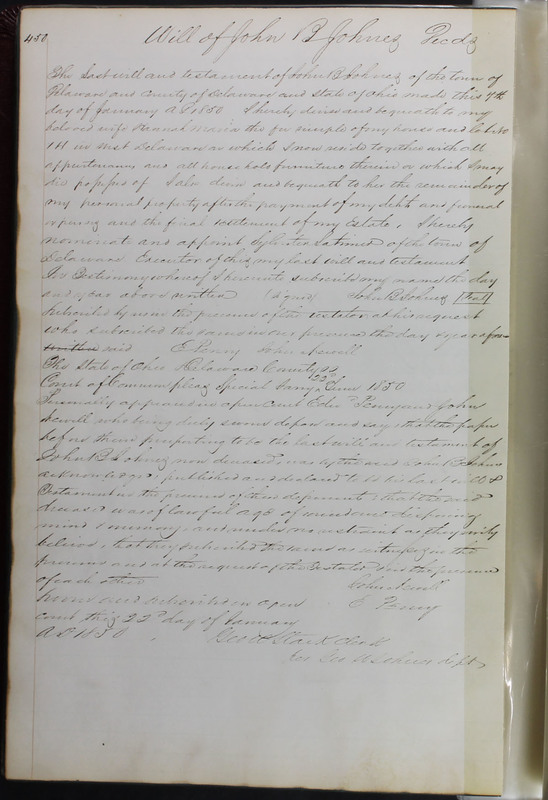 450
Will of John B Johnes Recds
The Last will and testament of John B Johnes of the town of
Delaware and County of Delaware and State of Ohio made this 7th
day of January AD 1850 I hereby devise and bequeath to my
beloved wife Maria the fee simple of my house and lot No
in west Delaware on which I now reside together with all
appertenances and all household furniture therein or which I may
die possessed of I also devise and bequeath to her the remainder of
my personal property after the payment of my debts and funeral
expenses and the final settlement of my Estate, I hereby
nominate and appoint of the town of
Delaware Executor of this my last will and testament
In Testimony whereof I hereunto subscribe my name the day
and year above written (signed) John B Johnes [Seal]
Subscribed by us in the presence of the testator at his request
who subscribed the same in our presence the day & year afore-
written said E Penny John Jewell
The State of Ohio Delaware County ss
Court of Common pleas Special Jany 22d Term 1850
Personally appeared in open Court Penny and John
Jewell who being duly sworn depose and say that the paper
before them purporting to be the last will and testament of
John B Johnes now deceased, was by the said John B Johnes
acknowledged, published and declared to be his last will &
Testament in the presence of these deponents; that the said
deceased was of lawful age of sound and disposing
mind & memory, and under no restraint as they verily
believe, that they subscribed the same as witnesses in the
presence and at the request of the testator and in the presence
of each other John Jewell
Sworn and subscribed in open E Penny
court this 22d day of January
AD 1850 Clerk
per Geo dept